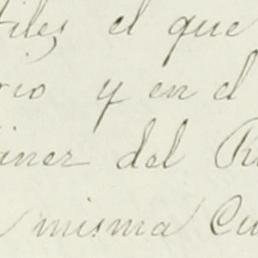 tiles el que
rio y en el
iner del R
misma Cu